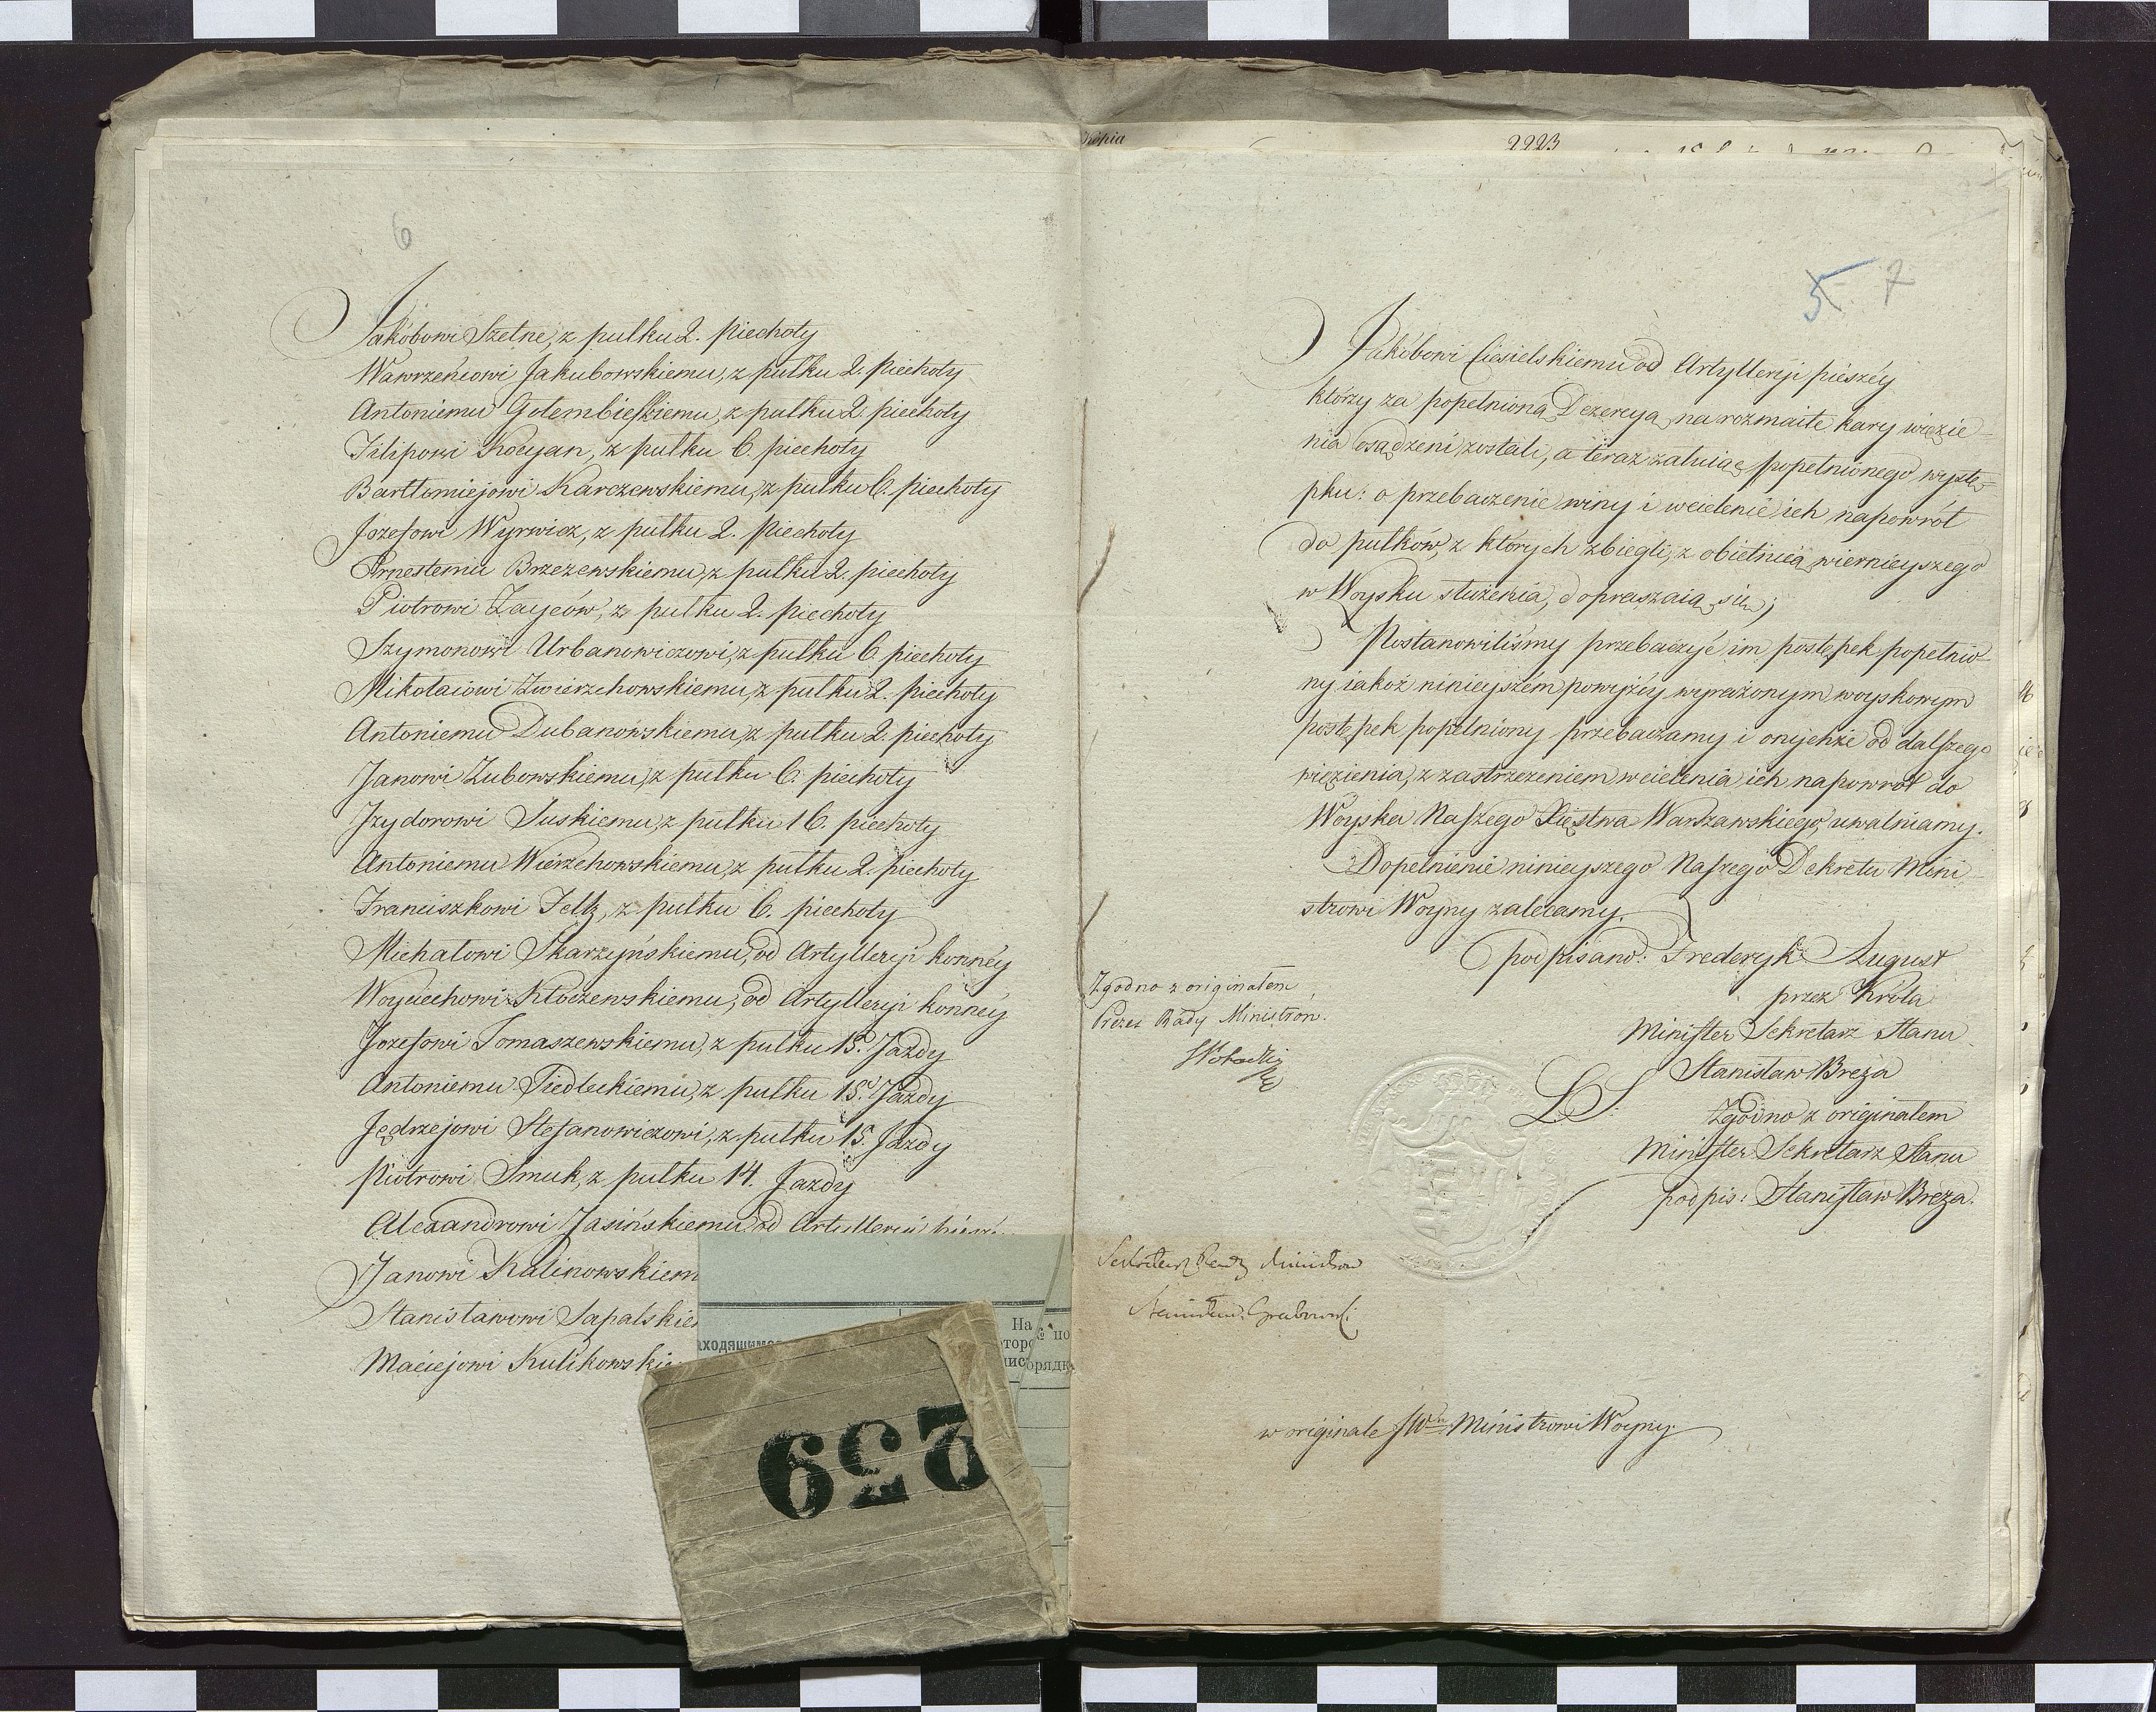 6
Jakóbowi Szelne, z pułku 2. piechoty
Wawrzeńiowi Jakubowskiemu, z pułku 2. piechoty
Antoniemu Gołembieſkiemu, z pułku 2. piechoty
Filipowi Kocyan, z pułku 6. piechoty
Bartłomiejowi Karczewskiemu, z pułku 6. piechoty
Jozefowi Wyrwicz, z pułku 2. piechoty
Ernestemu Brzezewskiemu, z pułku 2. piechoty
Piotrowi Zayców, z pułku 2. piechoty
Szymonowi Urbanowiczowi, z pułku 6. piechoty
Mikołaiowi Zwierzchowskiemu, z pułku 2. piechoty
Antoniemu Dubanowskiemu, z pułku 2. piechoty
Janowi Zubowskiemu, z pułku 6. piechoty
Izydorowi Suskiemu, z pułku 16. piechoty
Antoniemu Wierzchowskiemu, z pułku 2. piechoty
Franciszkowi Feltz, z pułku 6. piechoty
Michałowi Skarzyńskiemu, od Artylleryi konnéy
Woyciechowi Kłoczewskiemu, od Artylleryi konnéy
Jozefowi Tomaszewskiemu, z pułku 15. Jazdy
Antoniemu Siedleckiemu, z pułku 15. Jazdy
Jędrzejowi Stefanowiczowi, z pułku 15. Jazdy
Piotrowi Smuk, z pułku 14. Jazdy
Alexandrowi Jasińskiemu, od Artylleryi
Janowi Kalinowskiem
Stanisławowi Sapalskie
Maciejowi Kulikowski
На
№ по
259
Kopia
2223
5 7
Jakóbowi Ciesielskiemu od Artylleryi pieszéy
którzy za popełnioną Dezercyą na rozmaite kary więzie-
nia osądzeni zostali, a teraz żałuiąc popełnionego wystę-
pku: o przebaczenie winy i wcielenie ich napowrót
do pułków, z których zbiegli, z obietnicą wiernieyszego
w Woysku służenia, dopraszaią się;
Postanowiliśmy przebaczyć im postępek popełnio-
ny iakoż ninieyszém powyżéy wyrażonym woyskowym
postępek popełniony przebaczamy i onychże od dalſzego
więzienia, z zastrzeżeniem wcielenia ich napowrot do
Woyska Naſzego Xięstwa Warszawskiego, uwalniamy.
Dopełnienie ninieyszego Naſzego Dekretu Mini-
strowi Woyny zalecamy.
podpisano: Frederyk August
przez Króla
Miniſter Sekretarz Stanu
Stanisław Breza
LS.
Zgodno z originałem
Miniſter Sekretarz Stanu
podpis: Staniſław Breza.
Zgodno z originałem
Prezes Rady Ministrów.
Sekretarz Rady Ministrow
Stanisław Grabowski
w originale JWu Ministrowi Woyny